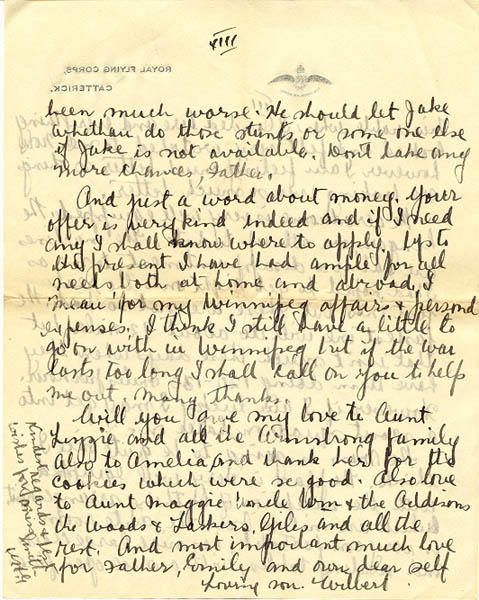 XIII
ROYAL FLYING CORPS,
CATTERICK.
been much worse. He should let Jake
Whethan do those stunts or some one else
if Jake is not available. Don't take any
more chances, Father.
And just a word about money. Your
offer is very kind indeed and if I need
any I shall know where to apply. Up to
the present I have had ample for all
needs both at home and abroad, I
mean for my Winnipeg affairs & personal
expenses. I think I still have a little to
go on with in Winnipeg but if the war
lasts too long I shall call on you to help
me out. Many thanks.
Will you give my love to Aunt
Lizzie and all the Armstrong family
Also to Amelia, and thank her for the
cookies which were so good. Also love
to Aunt Maggie Uncle Wm & the Addisons
the Woods & Lashers, Giles and all the
rest. And most important much love
for Father, Emily and own dear self
Loving son. Wilbert.
Kindest regards & best
wishes for Miss Smith